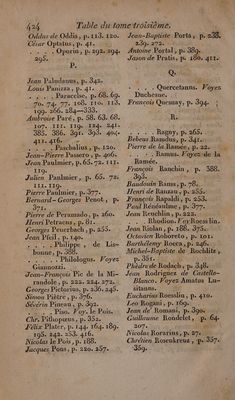 424 Table du tome troisième.
Oddus de Oddia, p. 113. 120.
César Optatus, p. 41.
. . . . Oporin, p. 292. 294.
295.
P.
Jean Paludanus, p. 342.
Louis Panizza, p. 41.
. . . . Paracelse, p. 68. 69.
70. 74. 77. 108. 110. 113.
199. 266. 284—333.
Ambroise Paré, p. 58. 63. 68.
107. 111. 119. 124. 241.
385. 386. 391. 393. 404.
411. 416.
. . . . Paschalius, p. 120.
Jean-Pierre Passero, p. 406.
Jean Paulmier, p. 65. 72. 111.
119.
Julien Paulmier, p. 65. 72.
111. 119.
Pierre Paulmier, p. 377.
Bernard-Georges Penot, p.
371.
Pierre de Peramado, p. 260.
Henri Petraeus, p. 81.
Georges Peuerbach, p. 255.
Jean Pfeil, p. 140.
. . . . Philippe, de Lisbonne, p. 388.
. . . . Philologus. Voyez
Giannozzi.
Jean-François Pic de la Mirandole, p. 222. 224. 272.
Georges Pictorius, p. 236. 245.
Simon Piètre, p. 376.
Séverin Pineau, p. 392.
. . . . Piso. Voy. le Pois.
Chr. Pithopœus, p. 352.
Félix Plater, p. 144. 164. 189.
195. 242. 253. 416.
Nicolas le Pois, p. 188.
Jacques Pons, p. 220. 257.
Jean-Baptiste Porta, p. 233.
239. 272.
Antoine Portal, p. 389.
Jason de Pratis, p. 180. 411.
Q.
. . . . Quercetanus. Voyez
Duchesne.
François Quesnay, p. 394.
R.
. . . . Ragny, p. 265.
Rebeus Ramdus, p. 341.
Pierre de la Ramée, p. 22.
. . . . Ramus. Voyez de la
Ramée.
François Ranchin, p. 388.
393.
Baudouin Rams, p. 78.
Henri de Ranzau, p. 255.
François Rapaldi, p. 255.
Paul Réneaulme, p. 377.
Jean Reuchlin, p. 222.
. . . . Rhodion. Voy Roesslin.
Jean Riolan, p. 188. 375.
Octavien Roboreto, p. 101.
Barthélemy Rocca, p. 246.
Michel-Baptiste de Rochlitz,
p. 351.
Phèdre de Rodach, p. 348.
Jean Rodriguez de Castello-
Blanco. Voyez Amatus Lusitanus.
Eucharius Roesslin, p. 410.
Leo Rogani, p. 169.
Jean de' Romani, p. 390.
Guillaume Rondelet, p. 64.
207.
Nicolas Rorarius, p. 27.
Chrétien Rosenkreuz, p. 357.
359.